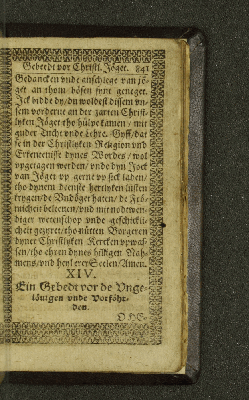 Gebedt vor Christl. Jöget. 841
Gedancken vnde anschlege van jö-
get an thom bösen synt geneget.
Ick bidde dy / du woldest dissen vn-
sem vorderue an der zarten Christ-
lyken Jöget tho hülpe kamen / mit
guder Tucht vnde Lehre. Gyff / dat
se in der Christlyken Religion vnd
Erkentenisse dynes Wordes / wol
vpgetagen werden / vnde dyn Jock
van Jöget vp gerne vp sick laden /
tho dynem deenste hertlyken lüsten
krygen / de Vndöget haten / de Frö-
micheit beleeuen / vnd mit nodtwen-
diger wetenschop vnde geschickli-
cheit gezyret / tho nütten Börgeren
dyner Christlyken Kercken vpwas-
sen / tho ehren dynes hilligen Nah-
mens / vnd heyl erer Seelen / Amen.
XIV.
Ein Gebedt vor de Vnge-
löuigen vnde Vorföhr-
den.